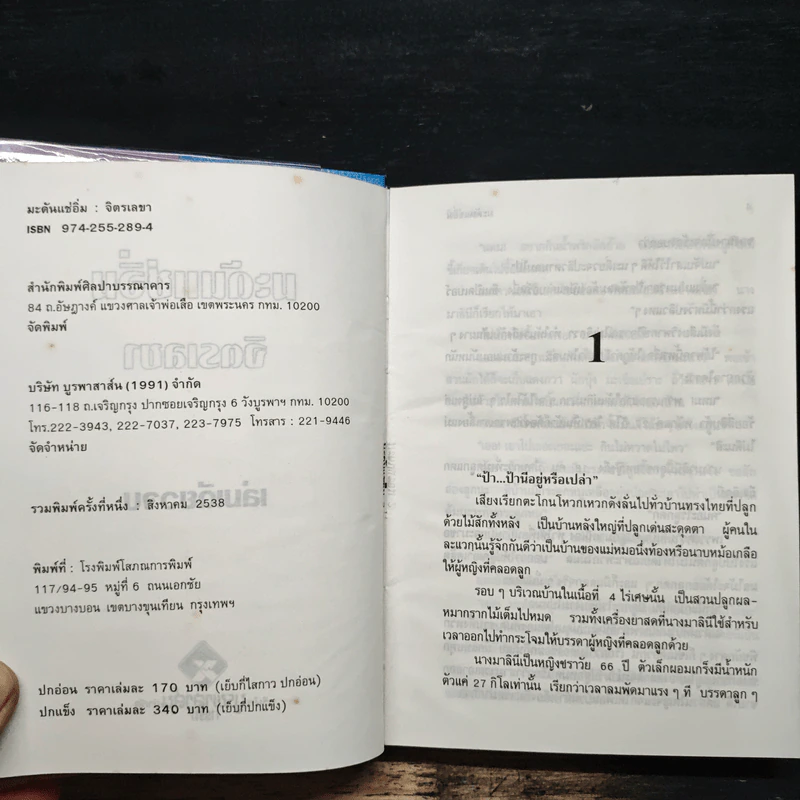 มะดันแช่อิ่ม : จิตรเลขา
ISBN 974-255-289-4
สำนักพิมพ์ศิลปาบรรณาคาร
84 ถ.อัษฎางค์ แขวงศาลเจ้าพ่อเสือ เขตพระนคร กทม. 10200
จัดพิมพ์
บริษัท บูรพาสาส์น (1991) จำกัด
116-118 ถ.เจริญกรุง ปากซอยเจริญกรุง 6 วังบูรพาฯ กทม. 10200
โทร.222-3943, 222-7037, 223-7975 โทรสาร : 221-9446
จัดจำหน่าย
รวมพิมพ์ครั้งที่หนึ่ง : สิงหาคม 2538
พิมพ์ที่ : โรงพิมพ์โสภณการพิมพ์
117/94-95 หมู่ที่ 6 ถนนเอกชัย
แขวงบางบอน เขตบางขุนเทียน กรุงเทพฯ
ปกอ่อน ราคาเล่มละ 170 บาท (เย็บกี่ไสกาว ปกอ่อน)
ปกแข็ง ราคาเล่มละ 340 บาท (เย็บกี่ปกแข็ง)
1
"ป้า...ป้านีอยู่หรือเปล่า"
เสียงเรียกตะโกนโหวกเหวกดังลั่นไปทั่วบ้านทรงไทยที่ปลูก
ด้วยไม้สักทั้งหลัง เป็นบ้านหลังใหญ่ที่ปลูกเด่นสะดุดตา ผู้คนใน
ละแวกนั้นรู้จักกันดีว่าเป็นบ้านของแม่หมอนึ่งท้องหรือนาบหม้อเกลือ
ให้ผู้หญิงที่คลอดลูก
รอบ ๆ บริเวณบ้านในเนื้อที่ 4 ไร่เศษนั้น เป็นสวนปลูกผล-
หมากรากไม้เต็มไปหมด รวมทั้งเครื่องยาสดที่นางมาลินีใช้สำหรับ
เวลาออกไปทำกระโจมให้บรรดาผู้หญิงที่คลอดลูกด้วย
นางมาลินีเป็นหญิงชราวัย 66 ปี ตัวเล็กผอมเกร็งมีน้ำหนัก
ตัวแค่ 27 กิโลเท่านั้น เรียกว่าเวลาลมพัดมาแรง ๆ ที บรรดาลูก ๆ